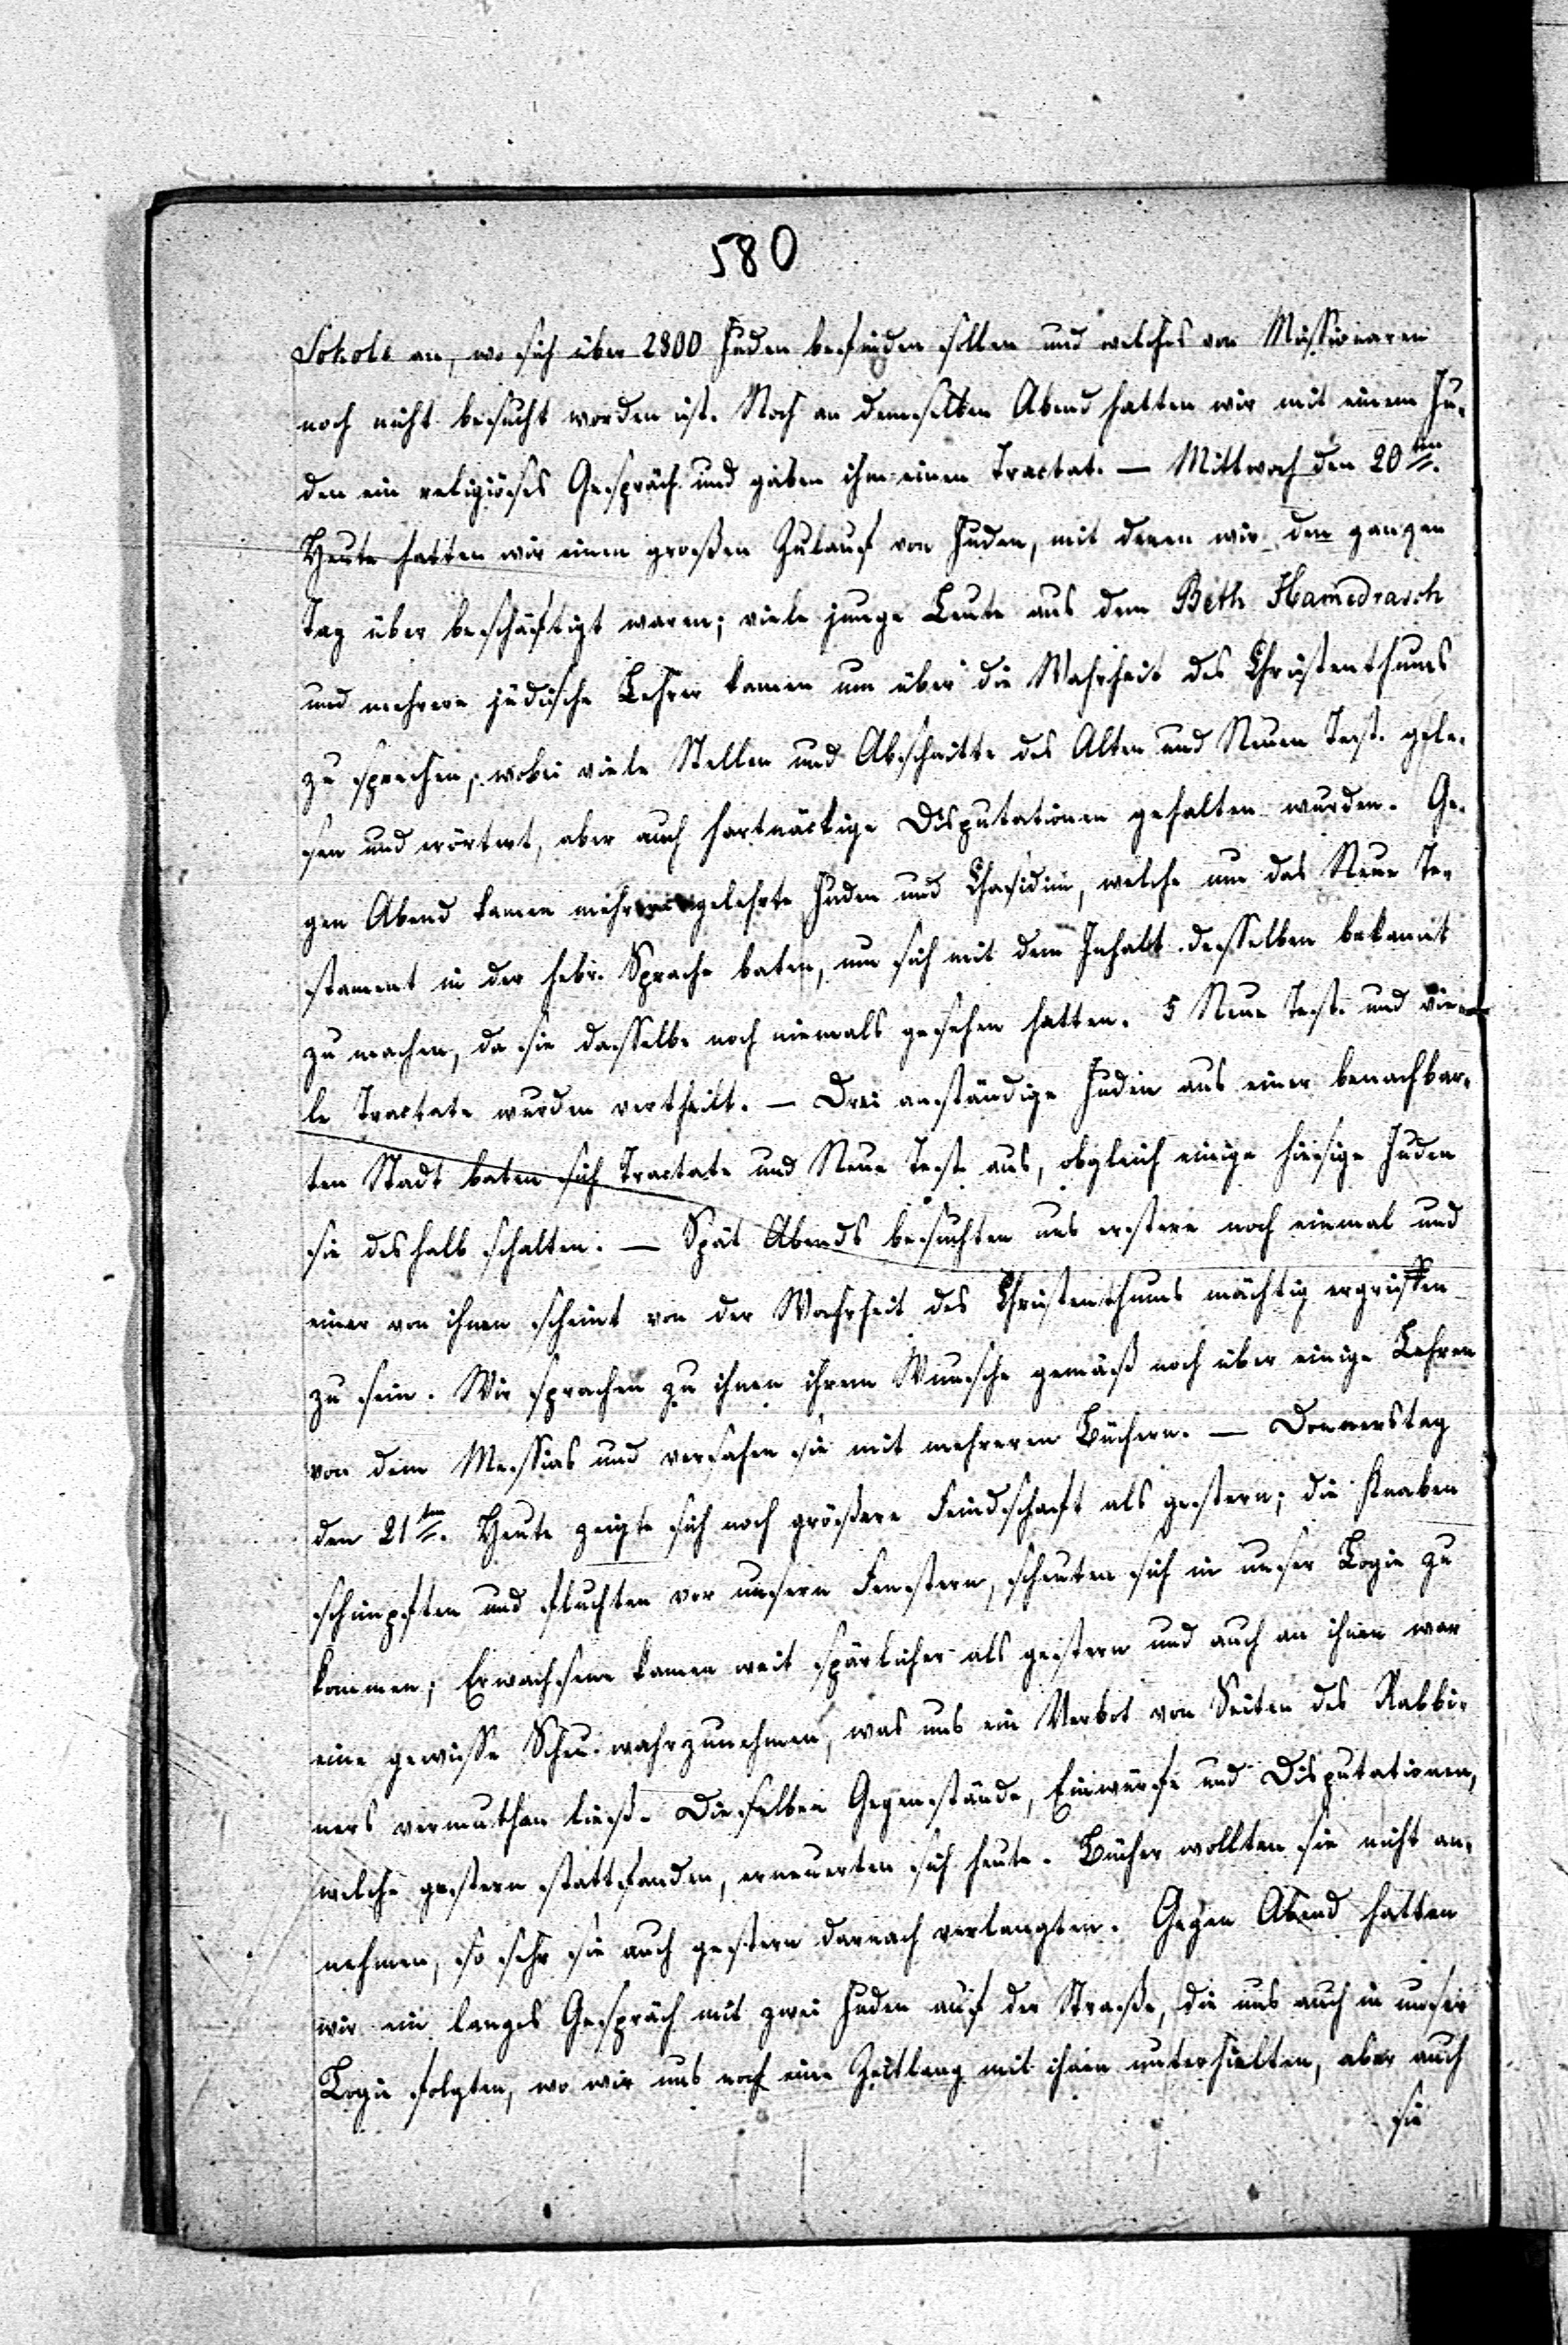 580
Sokole an, wo sich über 2800 Juden befinden sollen und welches von Missionaren
noch nicht besucht worden ist. Noch an demselben Abend hatten wir mit einem Ju-
den ein religiöses Gespräch und gaben ihm einen Tractat. — Mittwoch den 20ten.
Heute hatten wir einen großen Zulauf von Juden, mit denen wir den ganzen
Tag über beschäftigt waren; viele junge Leute aus dem Beth Hamedrasch
und mehrere jüdische Lehrer kamen um über die Wahrheit des Christenthums
zu sprechen, wobei viele Stellen und Abschnitte des Alten und Neuen Test. gele-
sen und erörtert, aber auch hartnäckige Disputationen gehalten wurden. Ge-
gen Abend kamen mehrere gelehrte Juden und Chasidim, welche um das Neue Te-
stament in der hebr. Sprache baten, um sich mit dem Inhalt desselben bekannt
zu machen, da sie dasselbe noch niemals gesehen hatten. 5 Neue Test. und vie-
le Tractate wurden vertheilt. — Drei anständige Juden aus einer benachbar-
ten Stadt baten sich Tractate und Neue Test. aus, obgleich einige hiesige Juden
sie deshalb schalten. — Spät Abends besuchten uns erstere noch einmal und
einer von ihnen scheint von der Wahrheit des Christenthums mächtig ergriffen
zu sein. Wir sprachen zu ihnen ihrem Wunsche gemäß noch über einige Lehren
von dem Messias und versahen sie mit mehreren Büchern. — Donnerstag
den 21ten. Heute zeigte sich noch größere Feindschaft als gestern; die Knaben
schimpften und fluchten vor unsern Fenstern, scheuten sich in unser Logie zu
kommen; Erwachsene kamen weit spärlicher als gestern und auch an ihnen war
eine gewisse Scheu wahrzunehmen, was uns ein Verbot von Seiten des Rabbi-
ners vermuthen ließ. Dieselben Gegenstände, Einwürfe und Disputationen,
welche gestern stattfanden, erneuerten sich heute. Bücher wollten sie nicht an-
nehmen, so sehr sie auch gestern darnach verlangten. Gegen Abend hatten
wir ein langes Gespräch mit zwei Juden auf der Straße, die uns auch in unser
Logie folgten, wo wir uns noch eine Zeitlang mit ihnen unterhielten, aber auch
sie